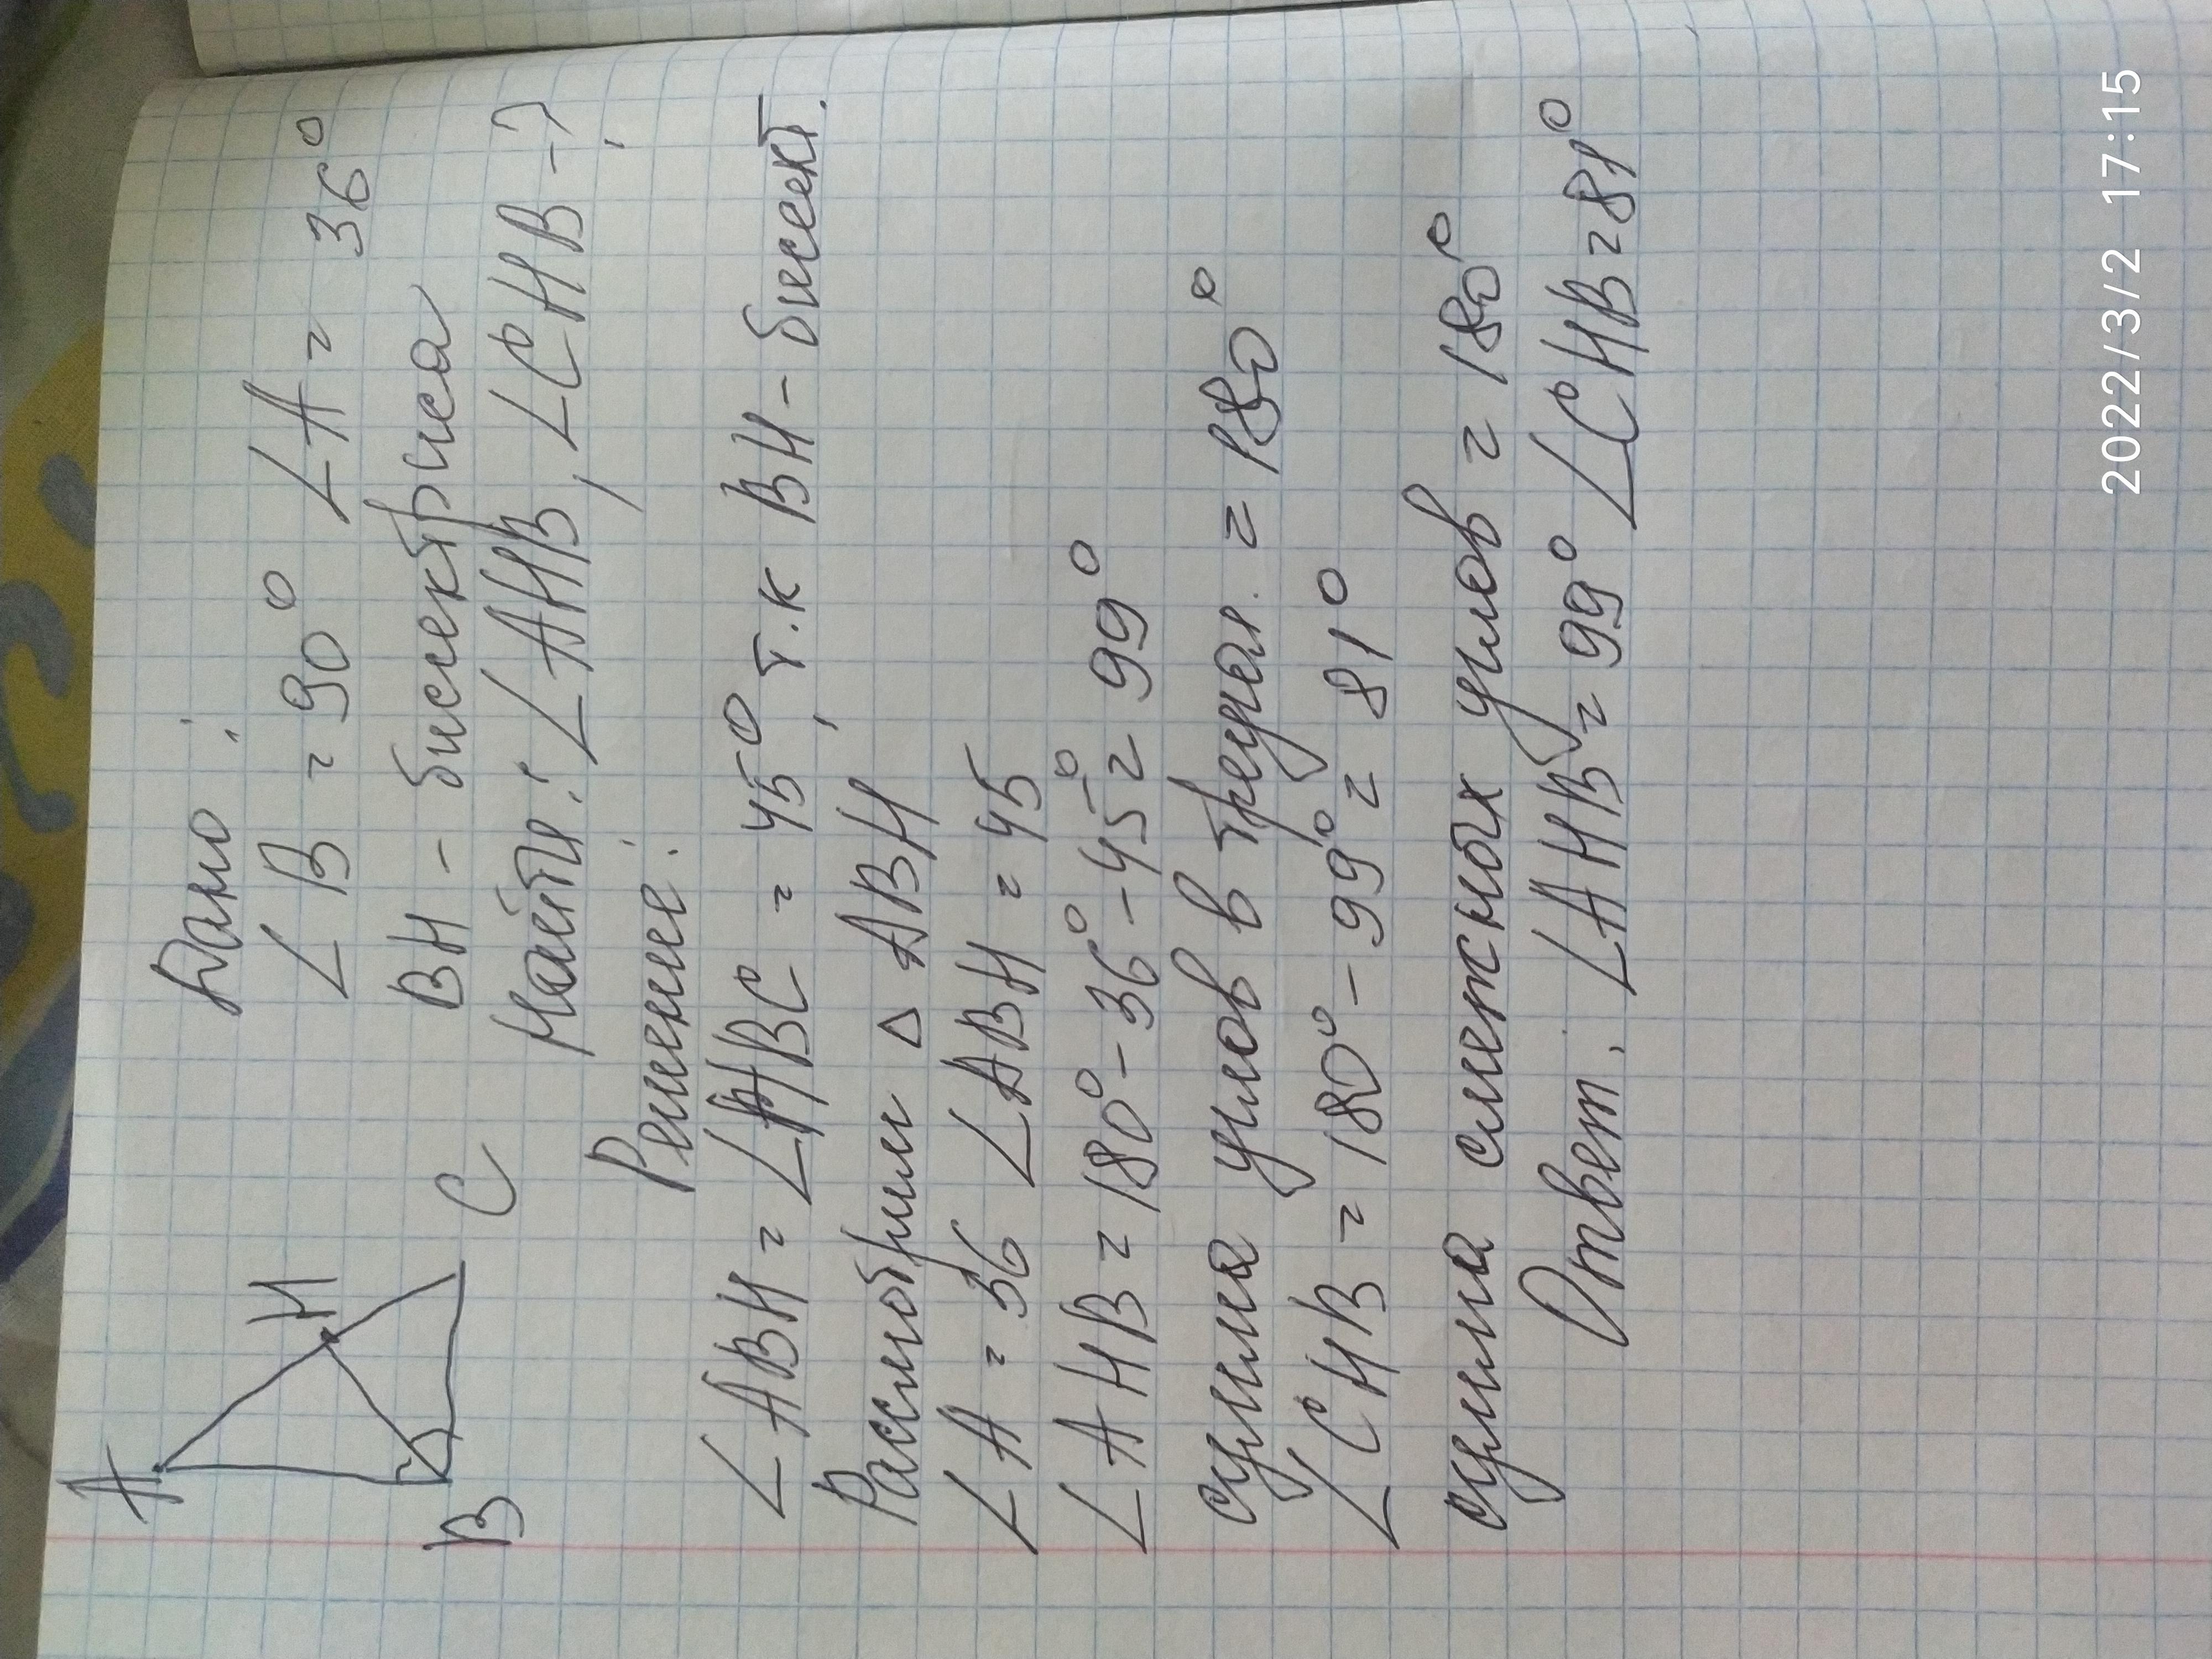 A
H
B
C
Дано:
∠B = 90° ∠A = 36°
BH - биссектриса
Найти: ∠AHB, ∠CHB - ?
Решение:
∠ABH = ∠HBC = 45°, т.к BH - биссект.
Рассмотрим △ ABH
∠A = 36 ∠ABH = 45
∠AHB = 180° - 36° - 45° = 99°
сумма углов в треугол. = 180°
∠CHB = 180° - 99° = 81°
сумма смежных углов = 180°
Ответ: ∠AHB = 99° ∠CHB = 81°
2022/3/2 17:15